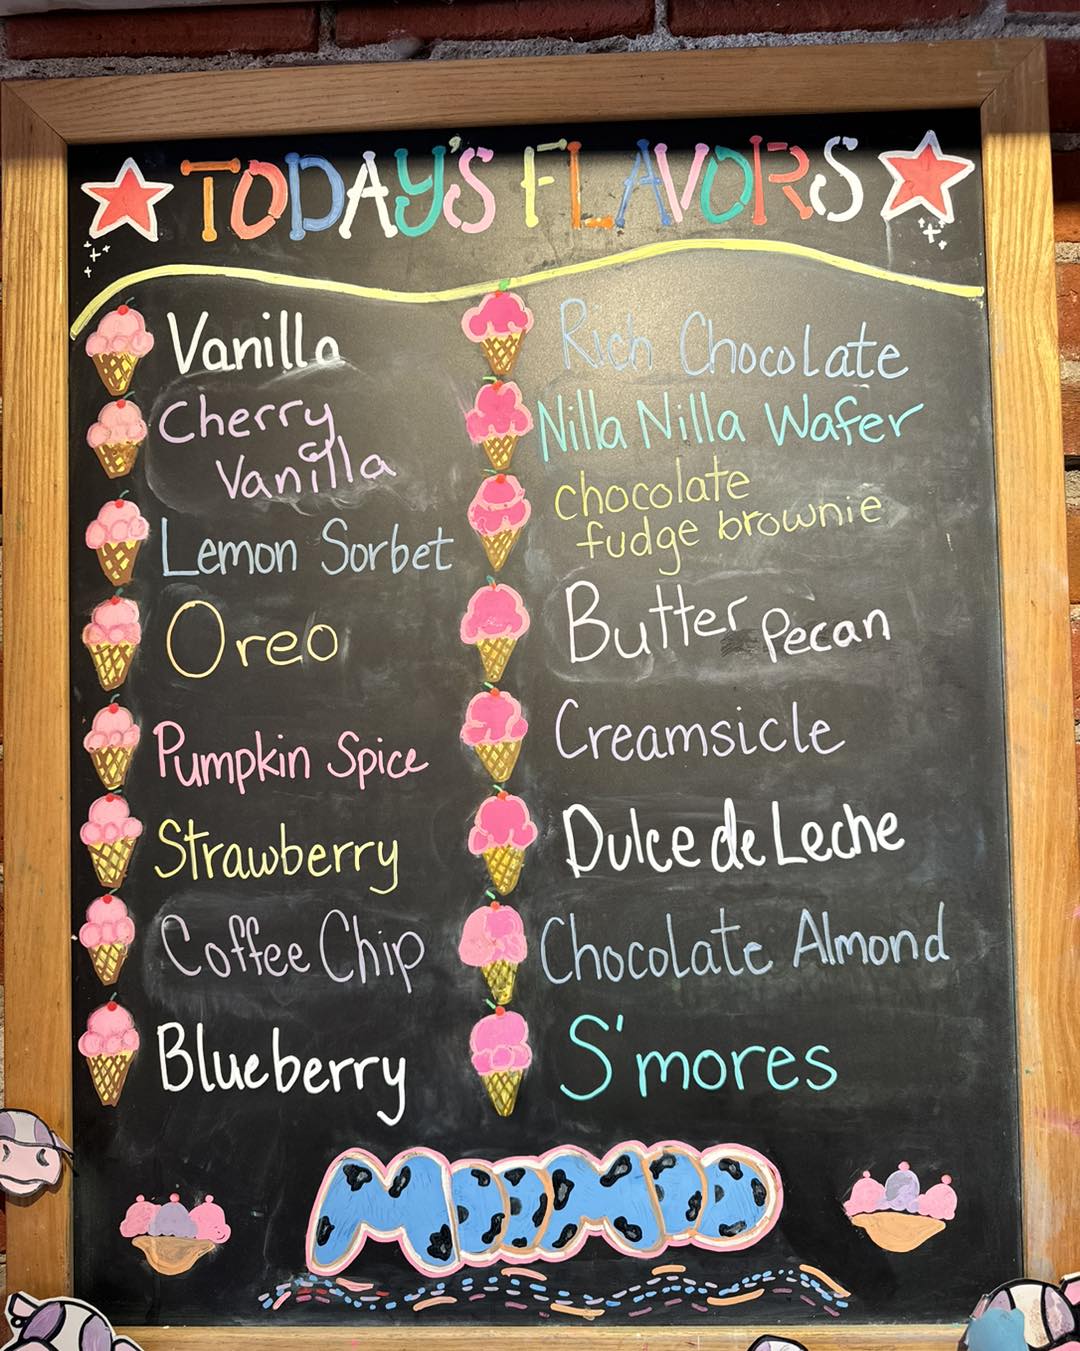 TODAY'S FLAVORS
Vanilla
Cherry
Vanilla
Lemon Sorbet
Oreo
Pumpkin Spice
Strawberry
Coffee Chip
Blueberry
Rich Chocolate
Nilla Nilla Wafer
chocolate
fudge brownie
Butter Pecan
Creamsicle
Dulce de Leche
Chocolate Almond
S'mores
MOOMOO